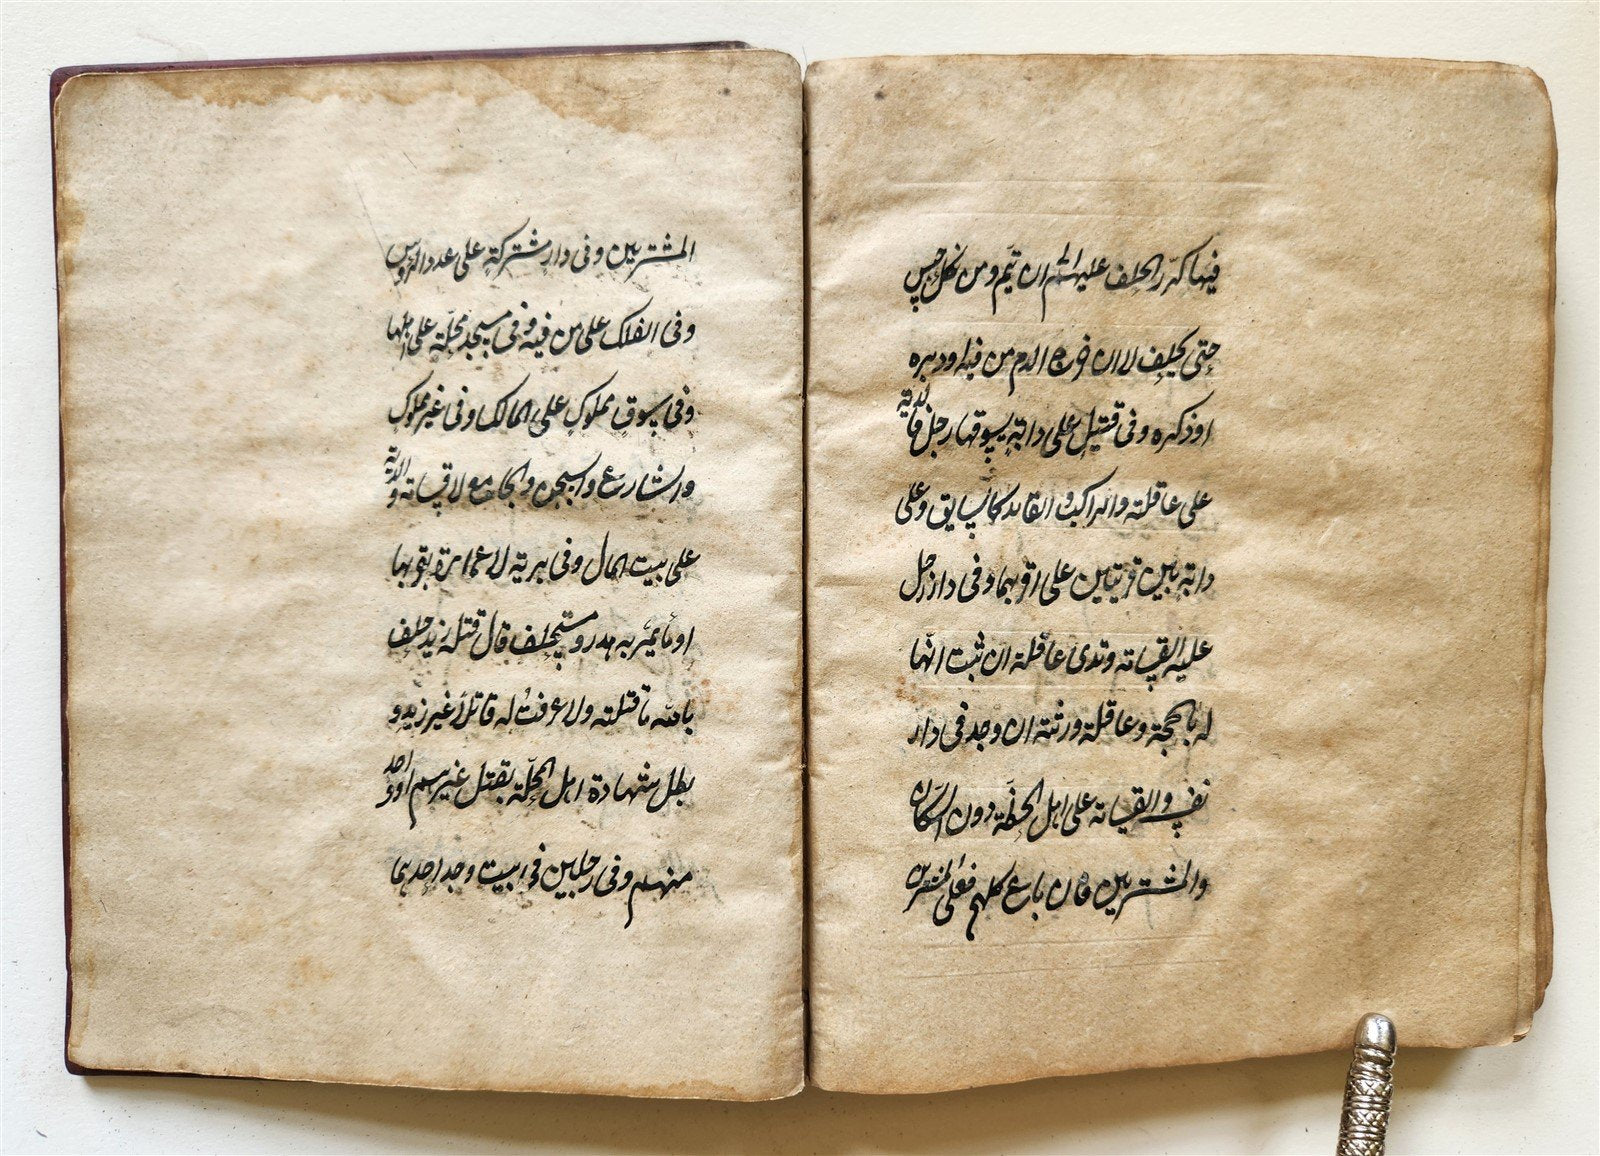 فيها كرر الحلف عليهم ان تتم ومن نكل حبس
حتى يحلف لا ان خرج الدم من فيه او دبره
او ذكره وفى قتيل على دابة يسوقها رجل فالدية
على عاقلته والراكب والقايد كالسايق وعلى
دابة بين قريتين على اقربهما وفى دار رجل
عليه القسامة وتدى عاقلته ان ثبت انها
له بالحجة وعاقلة ورثته ان وجد فى دار
نفسه والقسامة على اهل الخطة دون السكان
والمشترين فان باع كلهم فعلى المشترين
المشترين وفى دار مشتركة على عدد الروس
وفى الفلك على من فيه وفى مسجد محلة على اهلها
وفى سوق مملوك على المالك وفى غير مملوك
والشارع والسجن والجامع لا قسامة والدية
على بيت المال وفى برية لا عمارة بقربها
او ماء يمر به هدر ومستحلف قال قتله زيد حلف
بالله ما قتلته ولا عرفت له قاتلا غير زيد و
بطل شهادة اهل المحلة بقتل غيرهم او واحد
منهم وفى رجلين فى بيت وجد احدهما